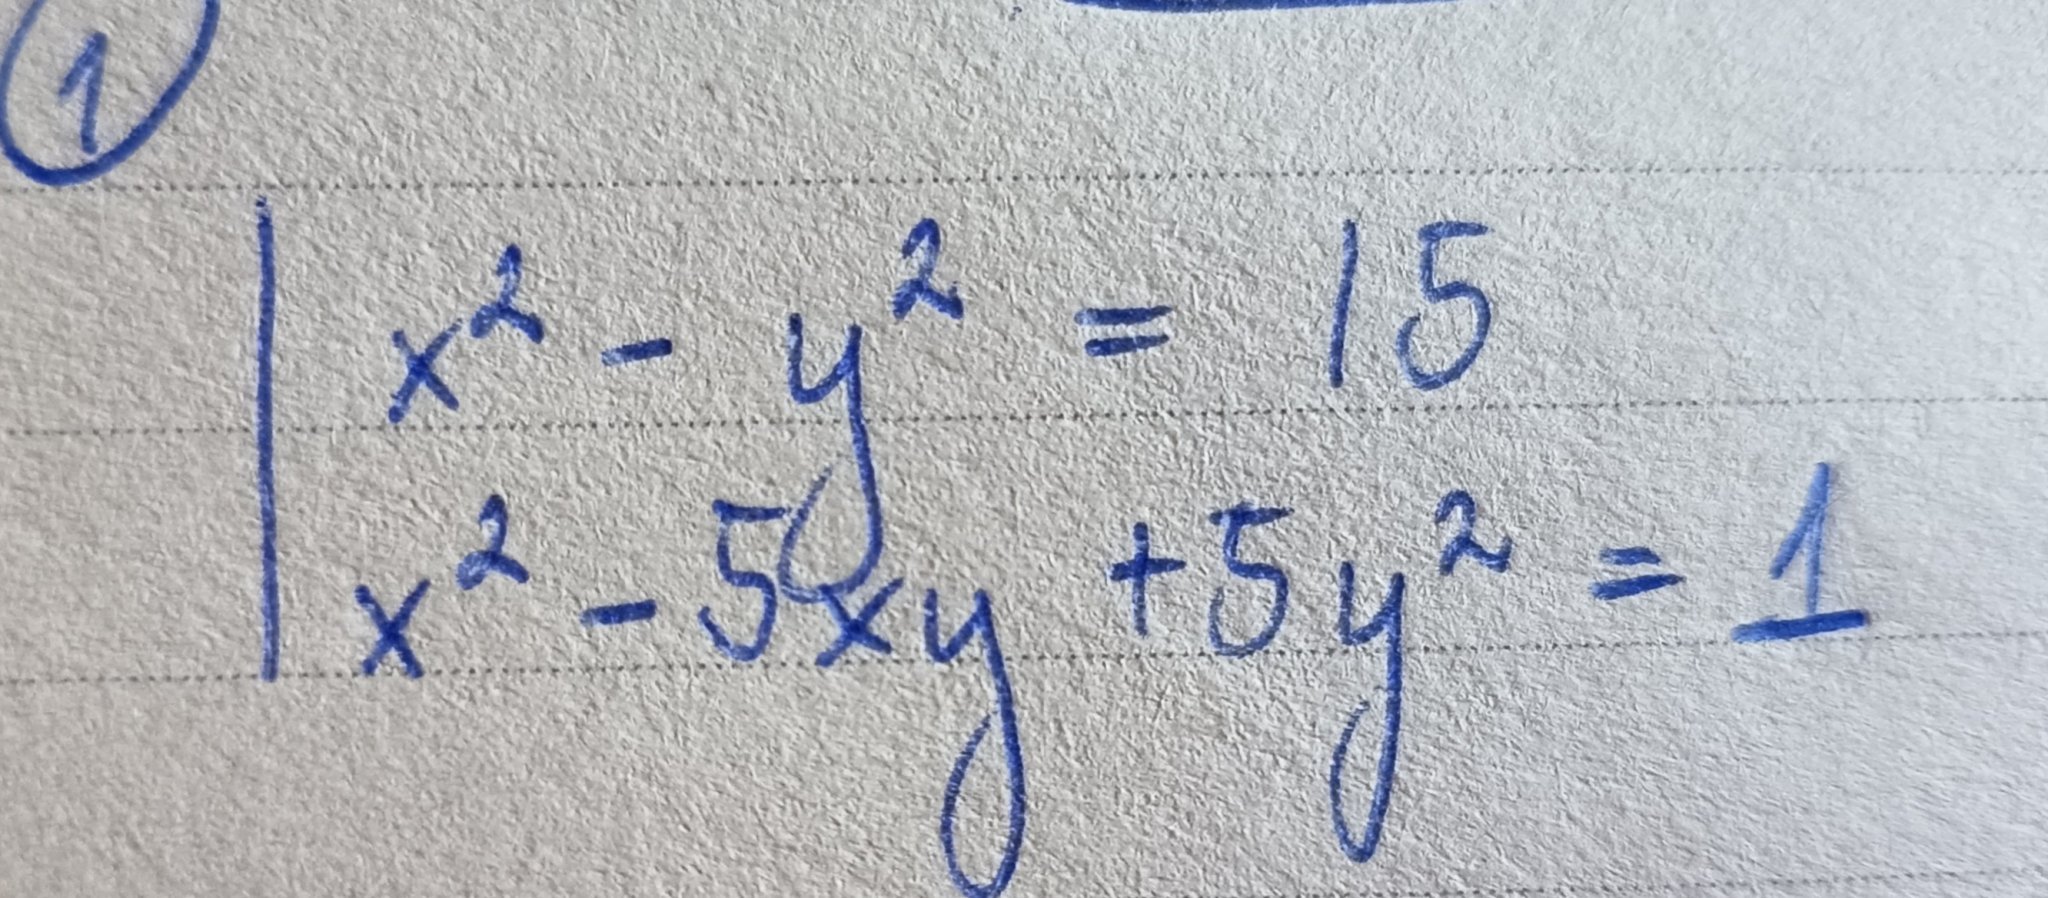 1
x² - y² = 15
x² - 5xy + 5y² = 1